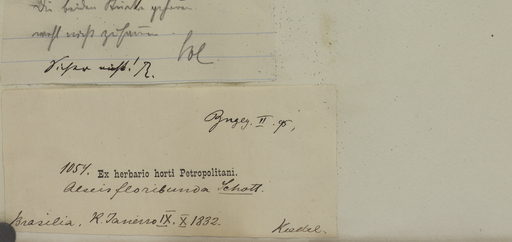 Die beiden Stücke gehören
wohl nicht zusammen
Sicher nicht!
II. 95,
1054. Ex herbario horti Petropolitani.
Alseis floribunda Schott.
Brasilia. R. Janeiro IX. X 1832.
Riedel.